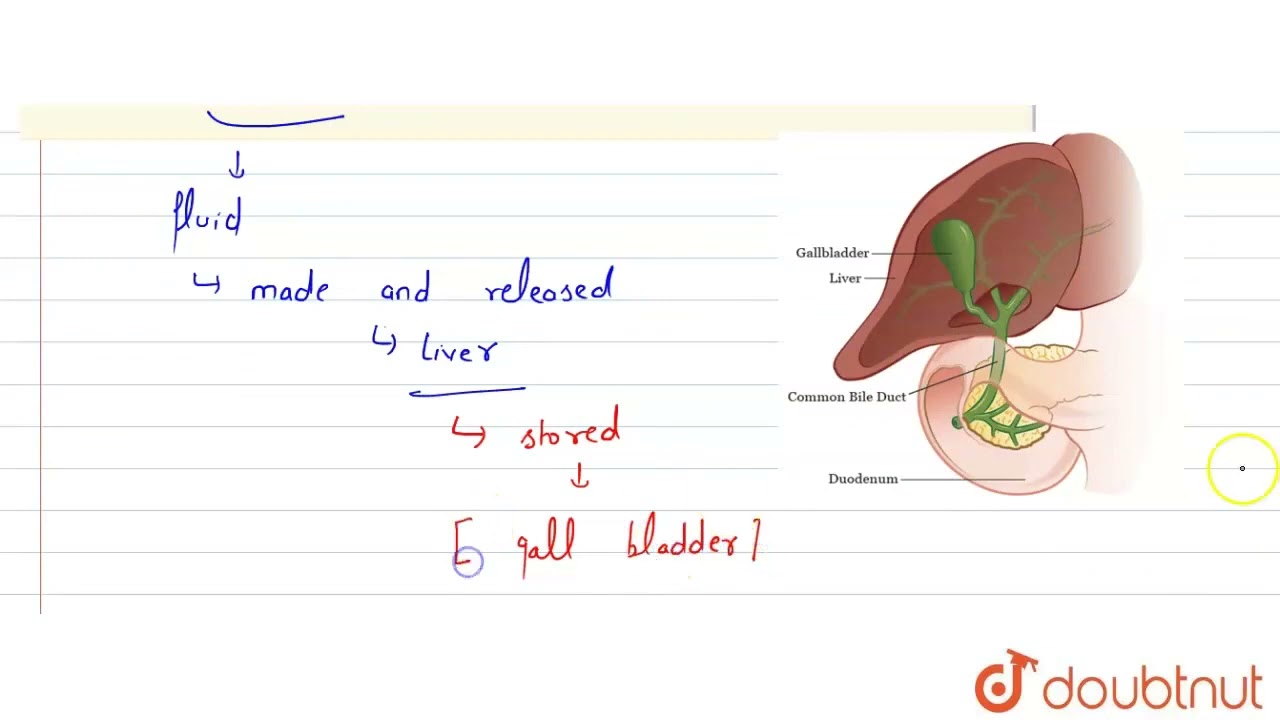 fluid
made and released
liver
stored
[ gall bladder ]
Gallbladder
Liver
Common Bile Duct
Duodenum
doubtnut